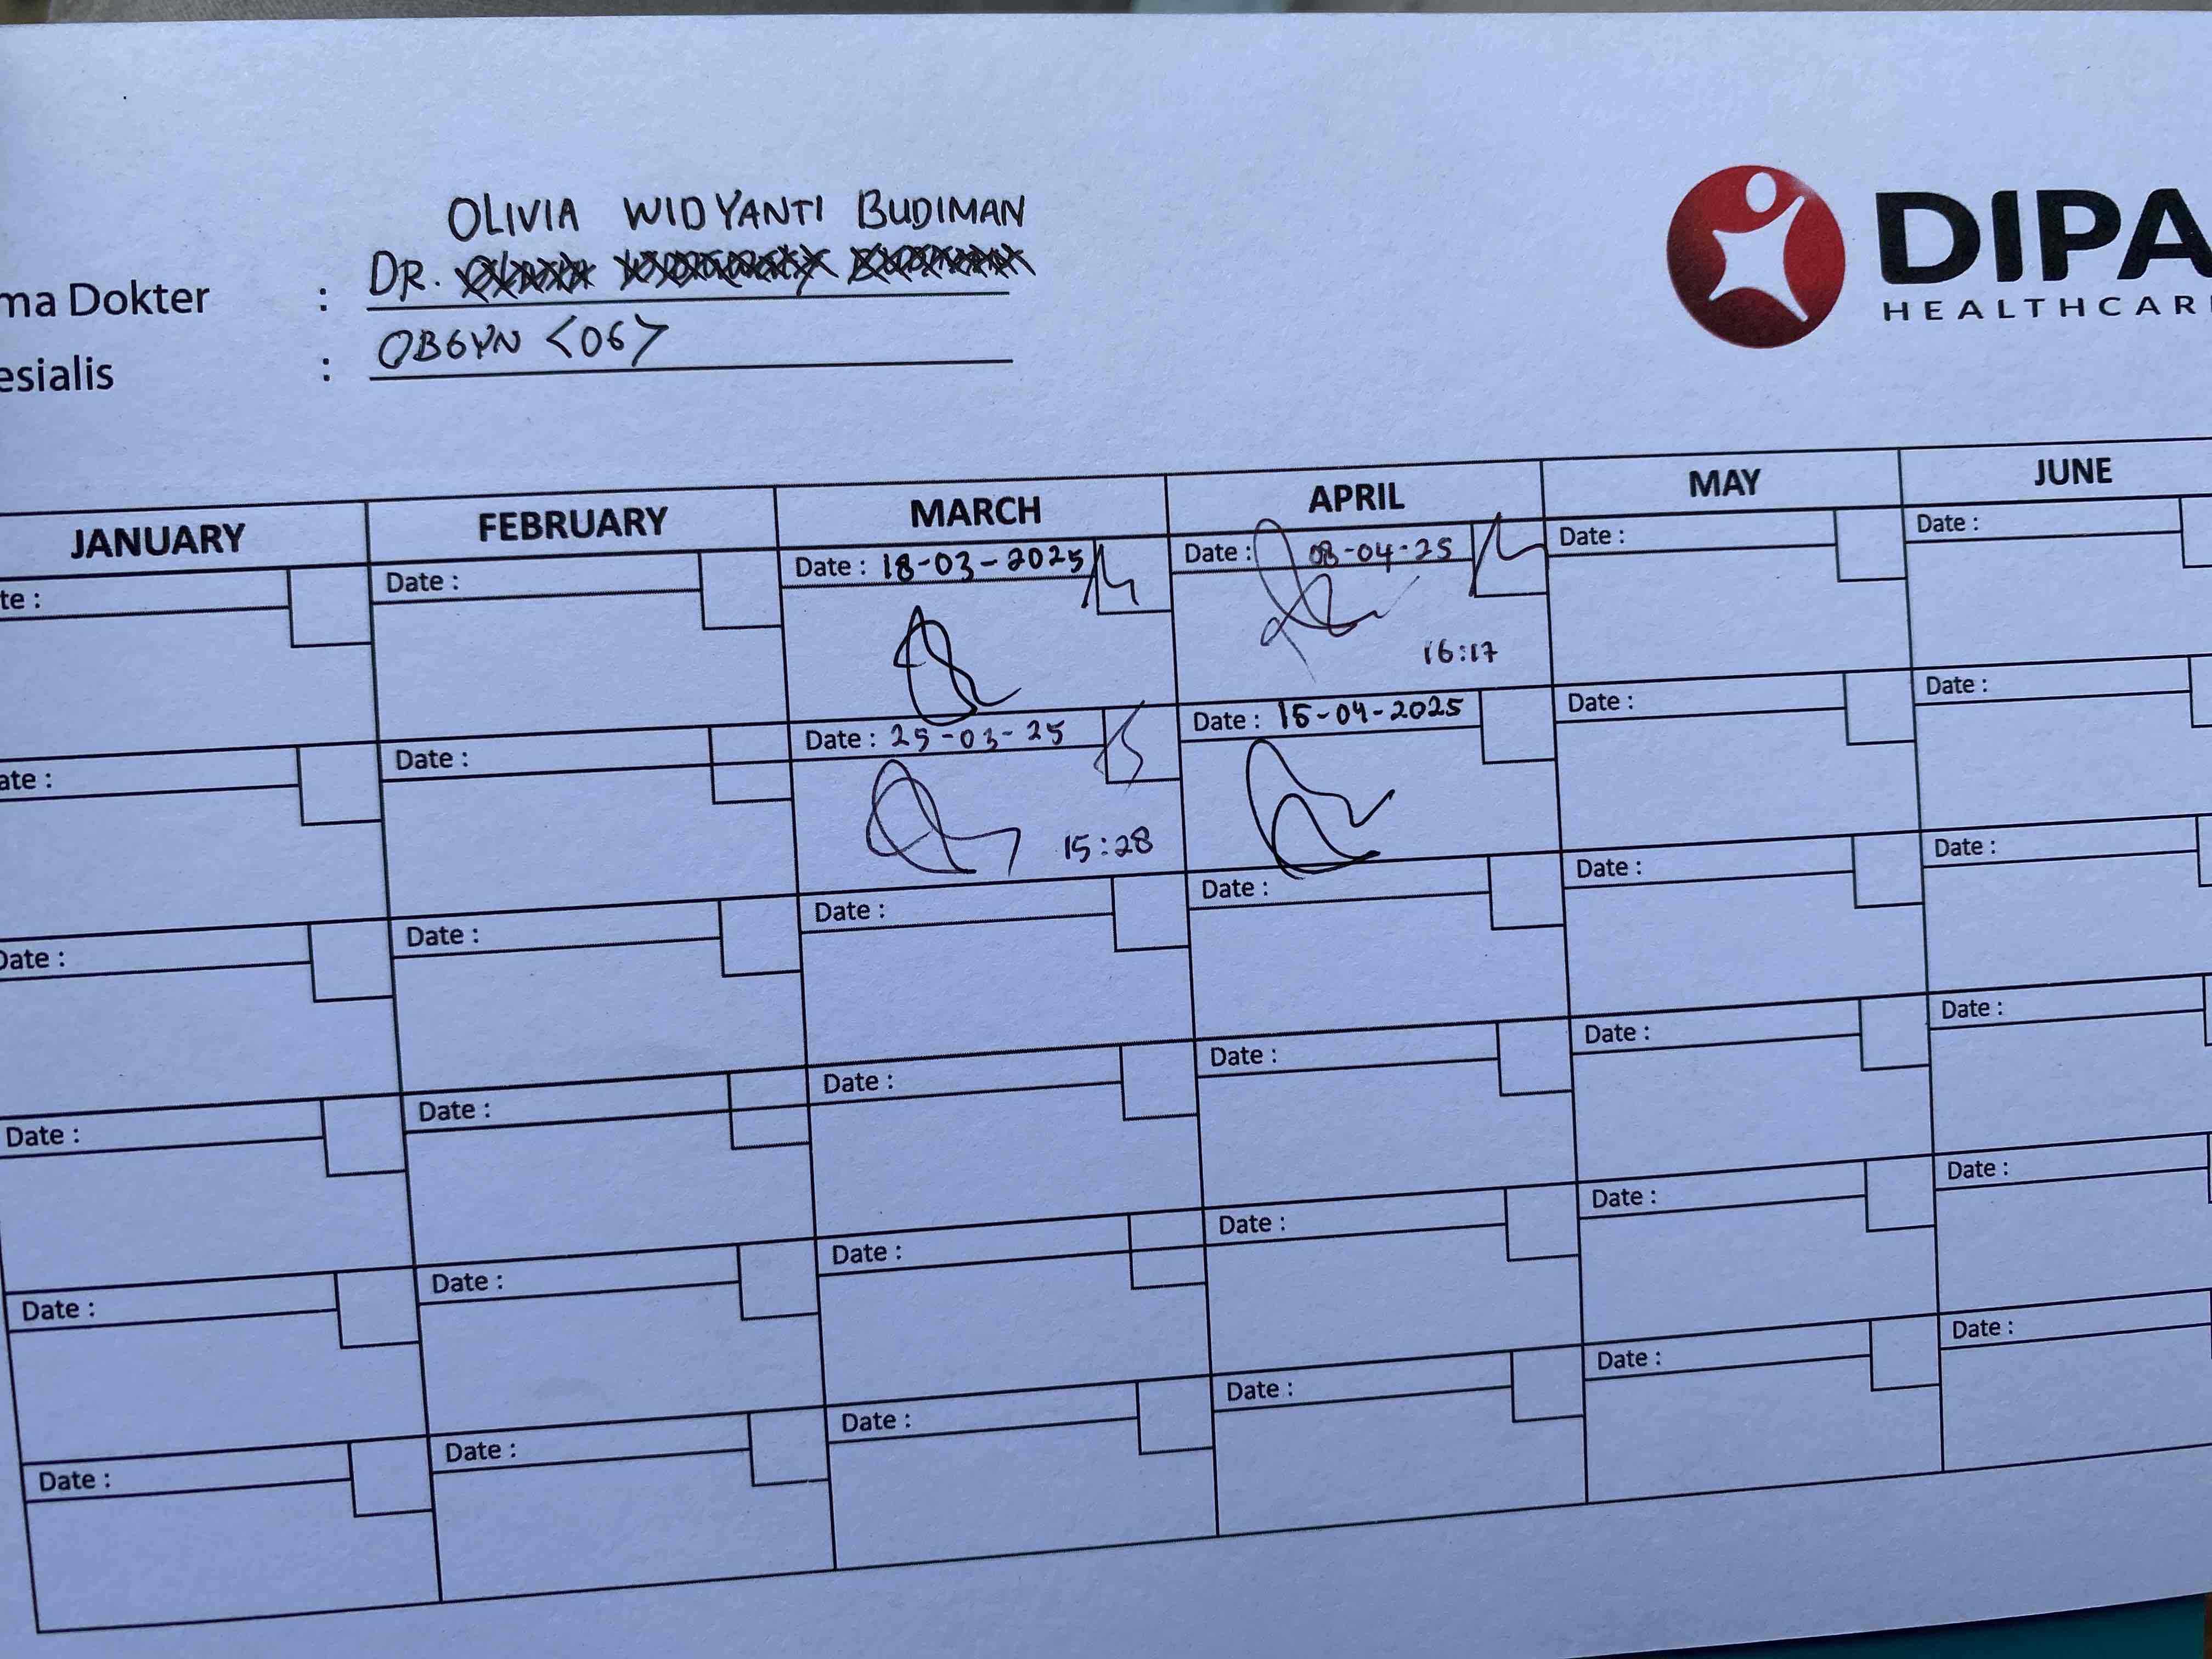 OLIVIA WIDYANTI BUDIMAN
ma Dokter : DR.
esialis : OBGYN <06>
DIPA
HEALTHCAR
JANUARY FEBRUARY MARCH APRIL MAY JUNE
te : Date : Date : 18-03-2025 Date : 08-04-25 Date : Date :
16:17
ate : Date : Date : 25-03-25 Date : 15-04-2025 Date : Date :
15:28
Date : Date : Date : Date : Date : Date :
Date : Date : Date : Date : Date : Date :
Date : Date : Date : Date : Date : Date :
Date : Date : Date : Date : Date : Date :